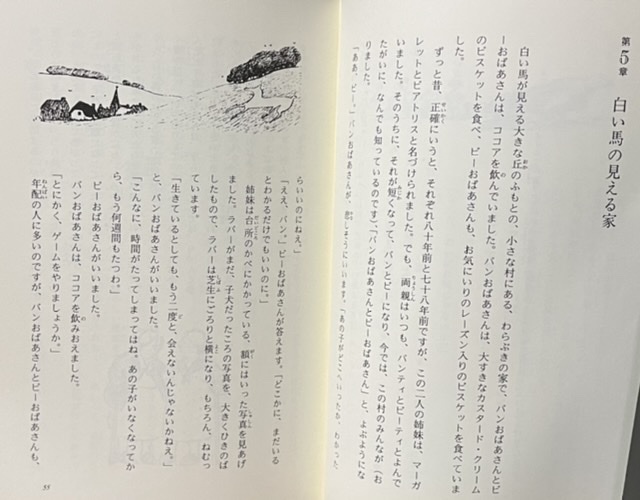 第5章 白い馬の見える家
白い馬が見える大きな丘のふもとの、小さな村にある、わらぶきの家で、バンおばあさんとビ
ーおばあさんは、ココアを飲んでいました。バンおばあさんは、大すきなカスタード・クリーム
のビスケットを食べ、ビーおばあさんも、お気にいりのレーズン入りのビスケットを食べていま
した。
ずっと昔、正確にいうと、それぞれ八十年前と七十八年前ですが、この二人の姉妹は、マーガ
レットとビアトリスと名づけられました。でも、両親はいつも、バンティとビーティとよんで
いました。そのうちに、それが短くなって、バンとビーになり、今では、この村のみんなが（お
たがいに、なんでも知っているのです）「バンおばあさんとビーおばあさん」と、よぶようにな
りました。
「ああ、ビー。」バンおばあさんが、悲しそうにいいます。「あの子がどこへいったか、わかった
らいいのにねえ。」
「ええ、バン。」ビーおばあさんが答えます。「どこかに、まだいる
とわかるだけでもいいのに。」
姉妹は台所のかべにかかっている、額にはいった写真を見あげ
ました。ラバーがまだ、子犬だったころの写真を、大きくひきのば
したもので、ラバーは芝生にごろりと横になり、もちろん、ねむっ
ています。
「生きているとしても、もう二度と、会えないんじゃないかねえ。」
と、バンおばあさんがいいました。
「こんなに、時間がたってしまってはね。あの子がいなくなってか
ら、もう何週間もたつわ。」
ビーおばあさんがいいました。
バンおばあさんは、ココアを飲みおえました。
「とにかく、ゲームをやりましょうか。」
年配の人に多いのですが、バンおばあさんとビーおばあさんも、
55